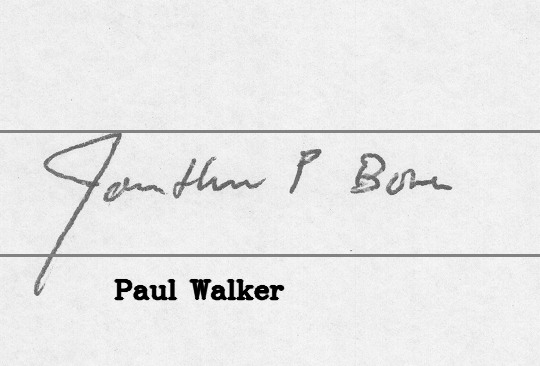 Jonathan P Bowen
Paul Walker